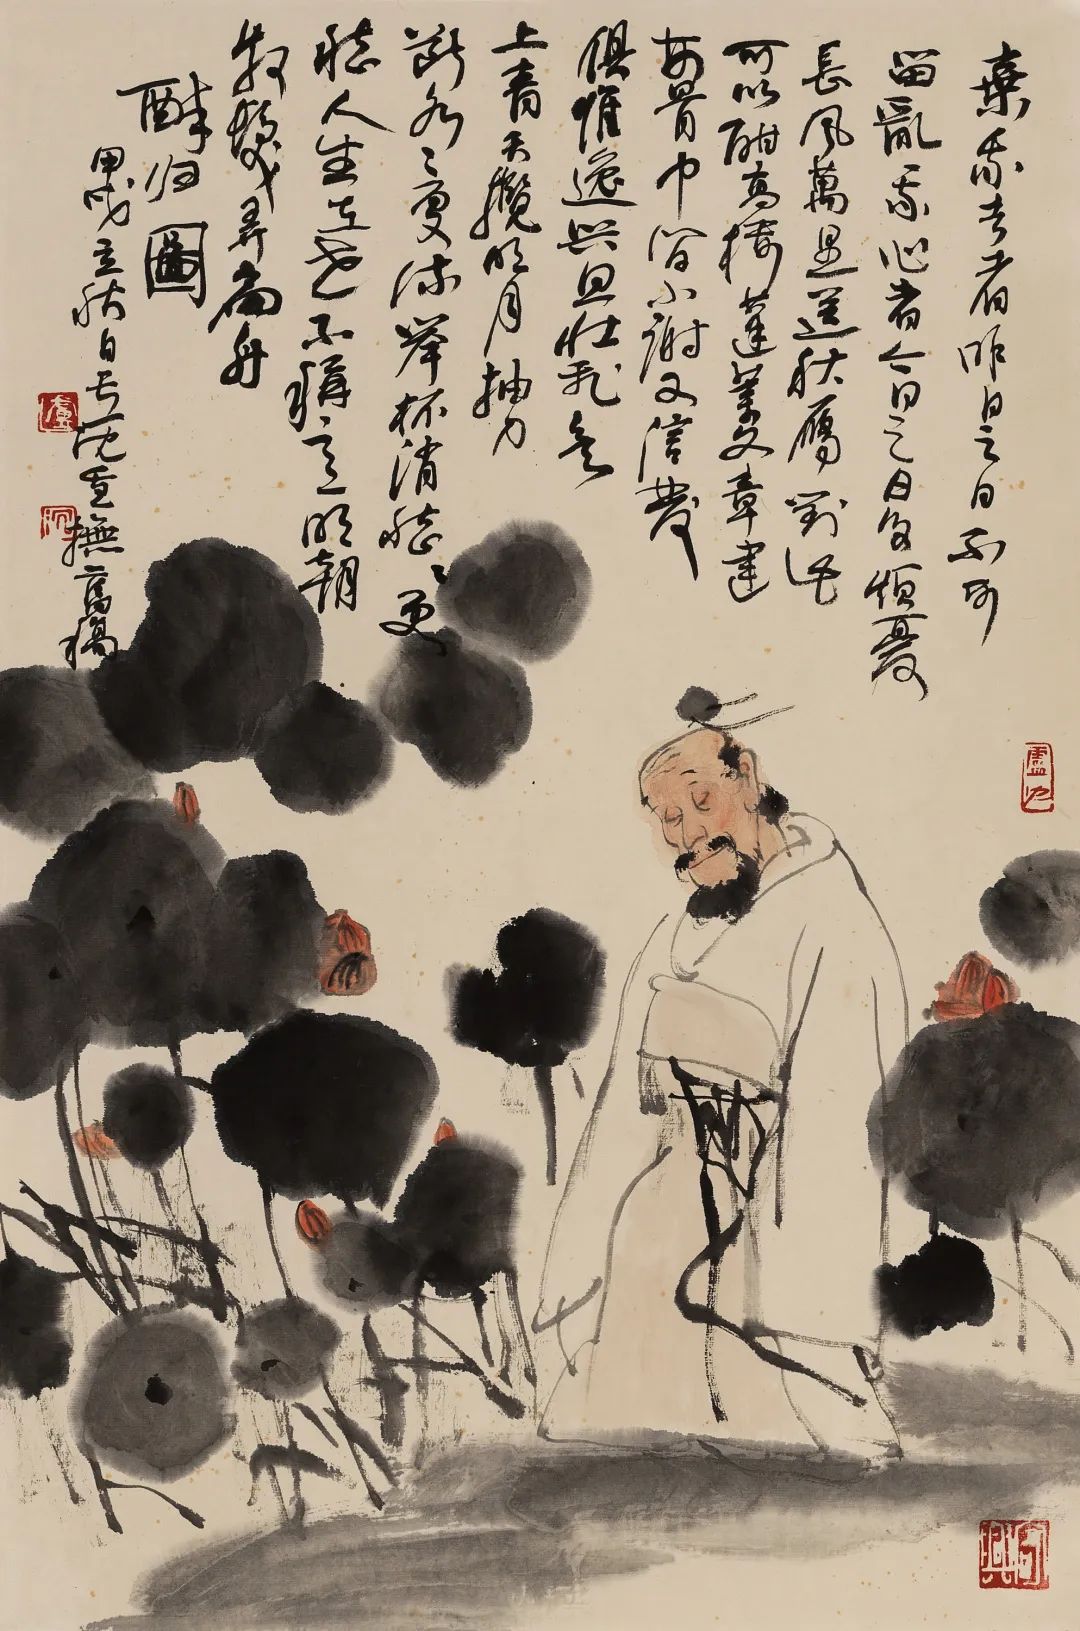 棄我去者昨日之日不可
留亂我心者今日之日多煩憂
長風萬里送秋雁對此
可以酣高樓蓬萊文章建
安骨中间小謝又清發
俱懷逸興思壯飛欲
上青天攬明月抽刀
斷水〻更流舉杯消愁〻更
愁人生在世不稱意明朝
散髮弄扁舟
醉归圖
甲戌立秋日卢沉重撫舊稿
盧
沉
盧沉